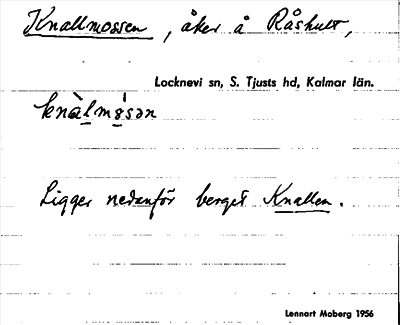 Knallmossen, åker å Råshult,
Locknevi sn, S. Tjusts hd, Kalmar län.
knàlmó̤sən
Ligger nedanför berget Knallen.
Lennart Moberg 1956